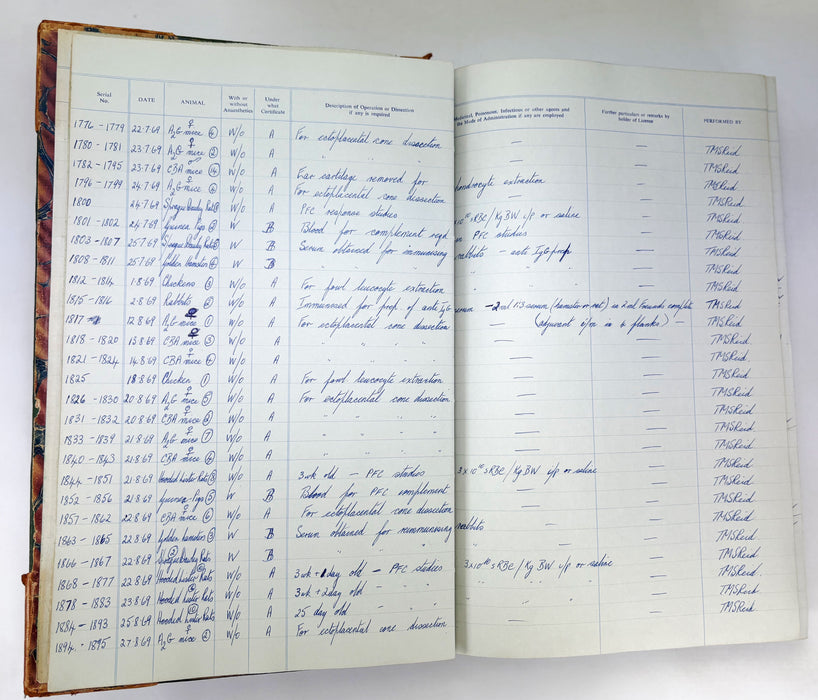 Serial No. DATE ANIMAL With or without Anaesthetics Under what Certificate Description of Operation or Dissection if any is required Medicinal, Poisonous, Infectious or other agents and the Mode of Administration if any are employed Further particulars or remarks by holder of Licence PERFORMED BY
1776 - 1779 22.7.69 A2G ♀ mice (4) W/o A For ectoplacental cone dissection — — TMSReid
1780 - 1781 23.7.69 A2G ♀ mice (2) W/o A " " " " — — TMSReid
1782 - 1795 23.7.69 CBA mice (14) W/o A Ear cartilage removed for chondrocyte extraction — TMSReid
1796 - 1799 24.7.69 A2G ♀ mice (4) W/o A For ectoplacental cone dissection — — TMSReid
1800 24.7.69 Sprague Dawley Rat W/o A PFC response studies sRBC / Kg BW i/p or saline — TMSReid
1801 - 1802 24.7.69 Guinea Pigs W B Blood for complement reqd in PFC studies — TMSReid
1803 - 1807 25.7.69 Sprague Dawley Rats W B Serum obtained for immunising rabbits - anti IgG prep — TMSReid
1808 - 1811 25.7.69 Golden hamsters (4) W B " " " " " " — TMSReid
1812 - 1814 1.8.69 Chickens (3) W/o A For fowl leucocyte extraction — — TMSReid
1815 - 1816 2.8.69 Rabbits (2) W/o A Immunised for prep. of anti IgG serum - 2 ml serum (hamster or rat) in 2 ml Freunds complete TMSReid
1817 12.8.69 A2G ♀ mice (1) W/o A For ectoplacental cone dissection (adjuvant i/m in 4 flanks) — TMSReid
1818 - 1820 13.8.69 CBA ♀ mice (3) W/o A " " " " — — TMSReid
1821 - 1824 14.8.69 CBA ♀ mice W/o A " " " " — — TMSReid
1825 18.8.69 Chicken (1) W/o A For fowl leucocyte extraction — — TMSReid
1826 - 1830 20.8.69 A2G ♀ mice (5) W/o A For ectoplacental cone dissection — — TMSReid
1831 - 1832 20.8.69 CBA ♀ mice (2) W/o A " " " " — — TMSReid
1833 - 1839 21.8.69 A2G ♀ mice (7) W/o A " " " " — — TMSReid
1840 - 1843 21.8.69 CBA ♀ mice (4) W/o A " " " " — — TMSReid
1844 - 1851 21.8.69 Hooded Lister Rats (8) W/o A 3wk old - PFC studies 3 x 10¹⁰ sRBC / Kg BW i/p or saline — TMSReid
1852 - 1856 21.8.69 Guinea-Pigs (5) W B Blood for PFC complement — — TMSReid
1857 - 1862 22.8.69 CBA ♀ mice (6) W/o A For ectoplacental cone dissection — — TMSReid
1863 - 1865 22.8.69 Golden hamsters (3) W B Serum obtained for immunising rabbits — TMSReid
1866 - 1867 22.8.69 Sprague Dawley Rats (2) W B " " " " " — TMSReid
1868 - 1877 22.8.69 Hooded Lister Rats (10) W/o A 3wk + 1 day old - PFC studies 3x10¹⁰ sRBC / Kg BW i/p or saline — TMSReid
1878 - 1883 23.8.69 Hooded Lister Rats (6) W/o A 3wk + 2 day old - " " " " " — TMSReid
1884 - 1893 25.8.69 Hooded Lister Rats (10) W/o A 25 day old - " " — — TMSReid
1894 - 1895 27.8.69 A2G ♀ mice (2) W/o A For ectoplacental cone dissection — — TMSReid